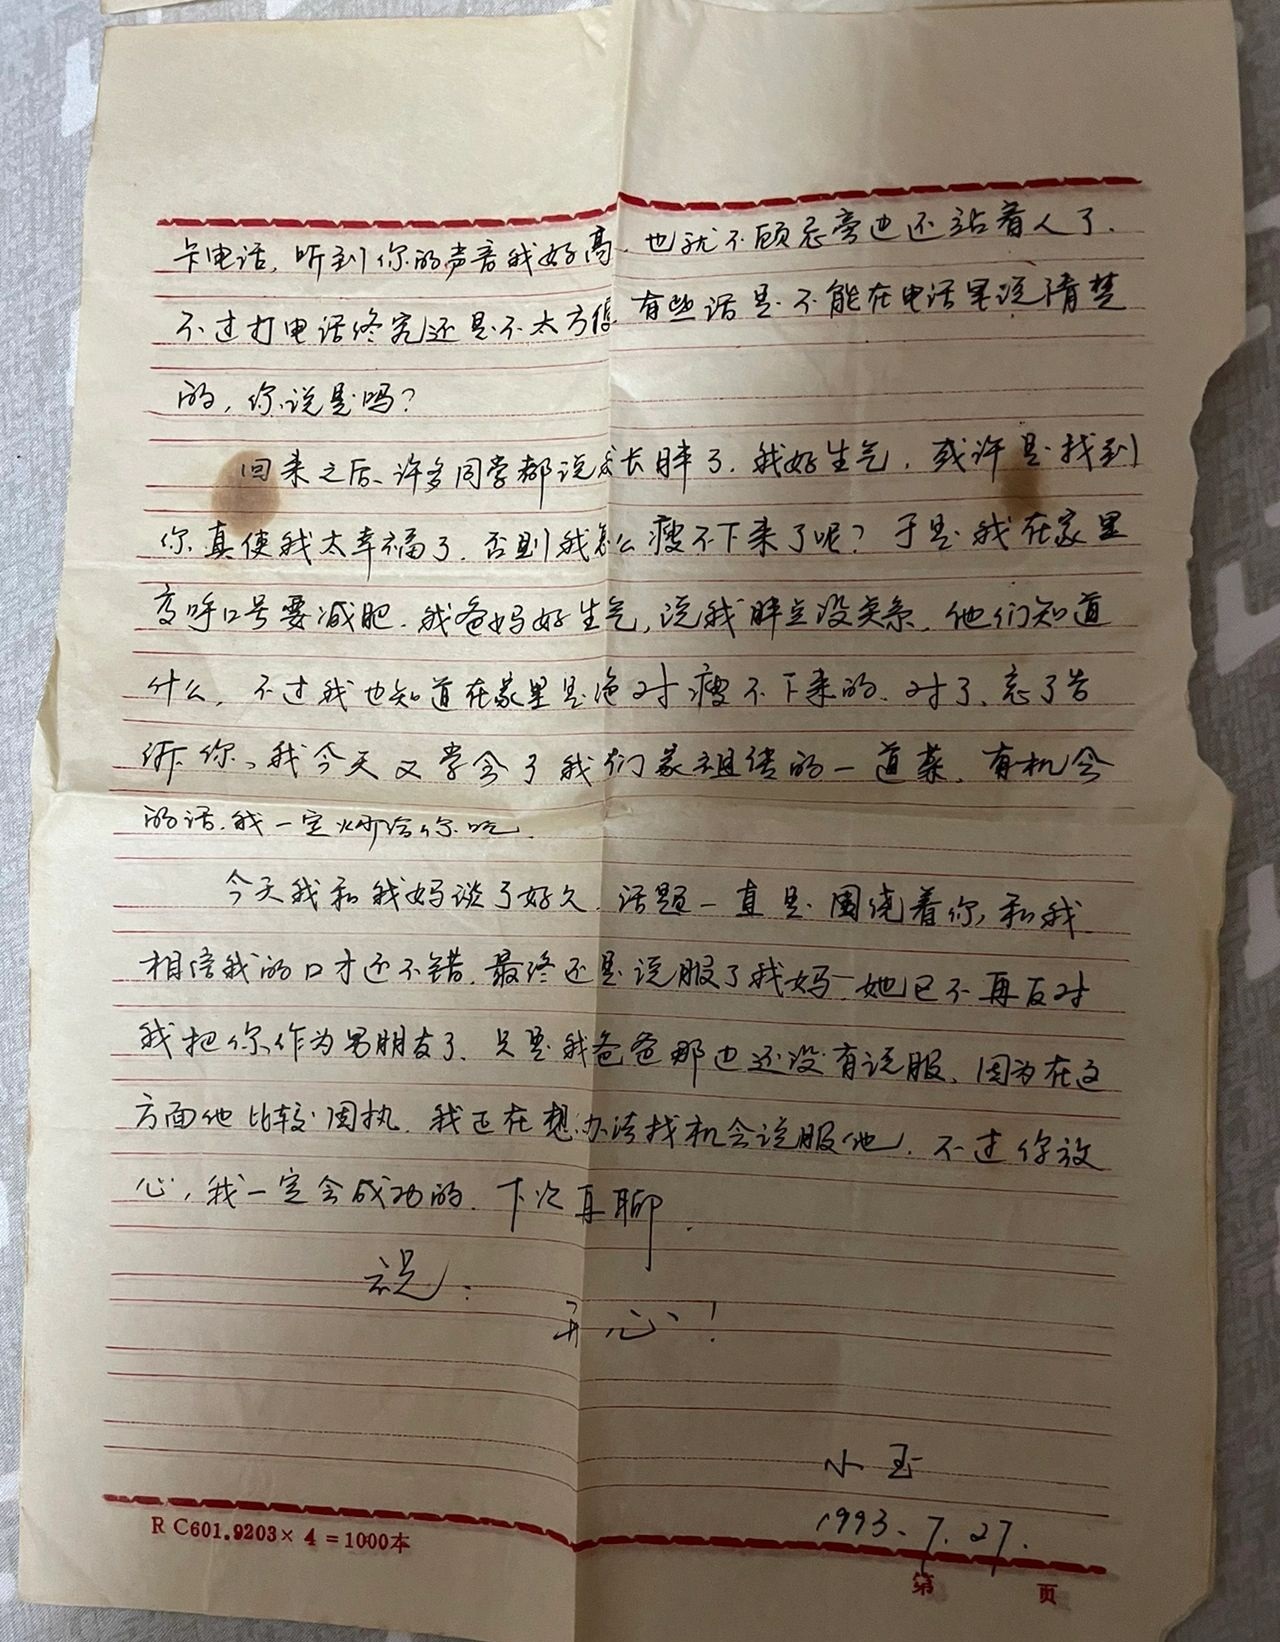 卡电话，听到你的声音我好高，也就不顾忌旁边还站着人了．
不过打电话终究还是不太方便，有些话是不能在电话里说清楚
的，你说是吗？
回来之后、许多同学都说我长胖了．我好生气，或许是找到
你真使我太幸福了．否则我怎么瘦不下来了呢？于是我在家里
高呼口号要减肥．我爸妈好生气，说我胖点没关系．他们知道
什么，不过我也知道在家里是绝对瘦不下来的．对了、忘了告
诉你、我今天又学会了我们家祖传的一道菜．有机会
的话．我一定炒给你吃．
今天我和我妈谈了好久．话题一直是围绕着你和我．
相信我的口才还不错．最终还是说服了我妈．她已不再反对
我把你作为男朋友了．只是我爸爸那边还没有说服、因为在这
方面他比较固执．我正在想办法找机会说服他，不过你放
心，我一定会成功的．下次再聊．
祝：
开心！
小玉
1993．7．27．
R C601.9203×4＝1000本
第 页